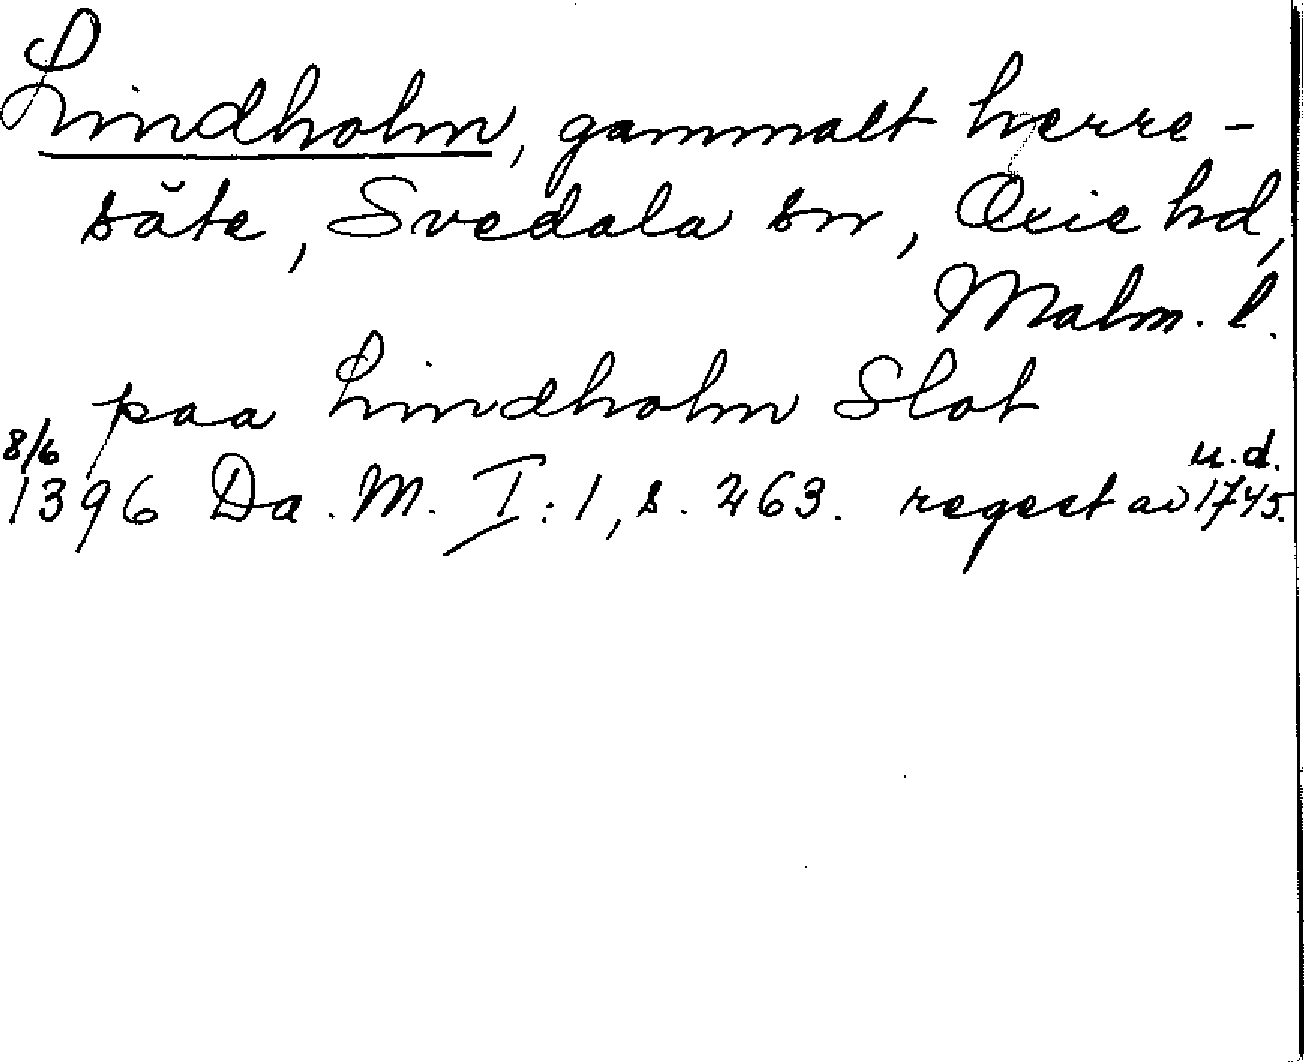 Lindholm, gammalt herre-
säte, Svedala sn, Oxie hd,
Malm. l.
paa Lindholm Slot
8/6 u.d.
1396 Da. M. I: 1, s. 263. regest av 1745.